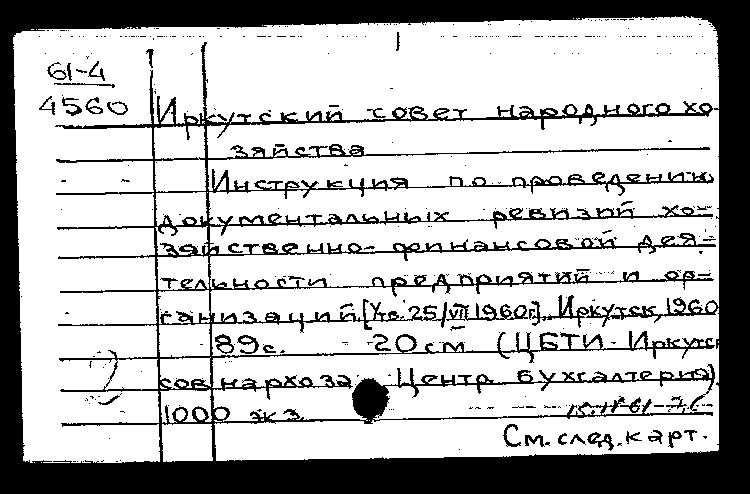 61-4
4560
Иркутский совет народного хо-
зяйства
Инструкция по проведению
документальных ревизий хо-
зяйственно-финансовой дея-
тельности предприятий и ор-
ганизаций [Утв. 25/VII 1960г.]. Иркутск, 1960
89с. 20см (ЦБТИ Иркутск
совнархоза Центр. бухгалтерия)
1000 экз.
См. след. карт.